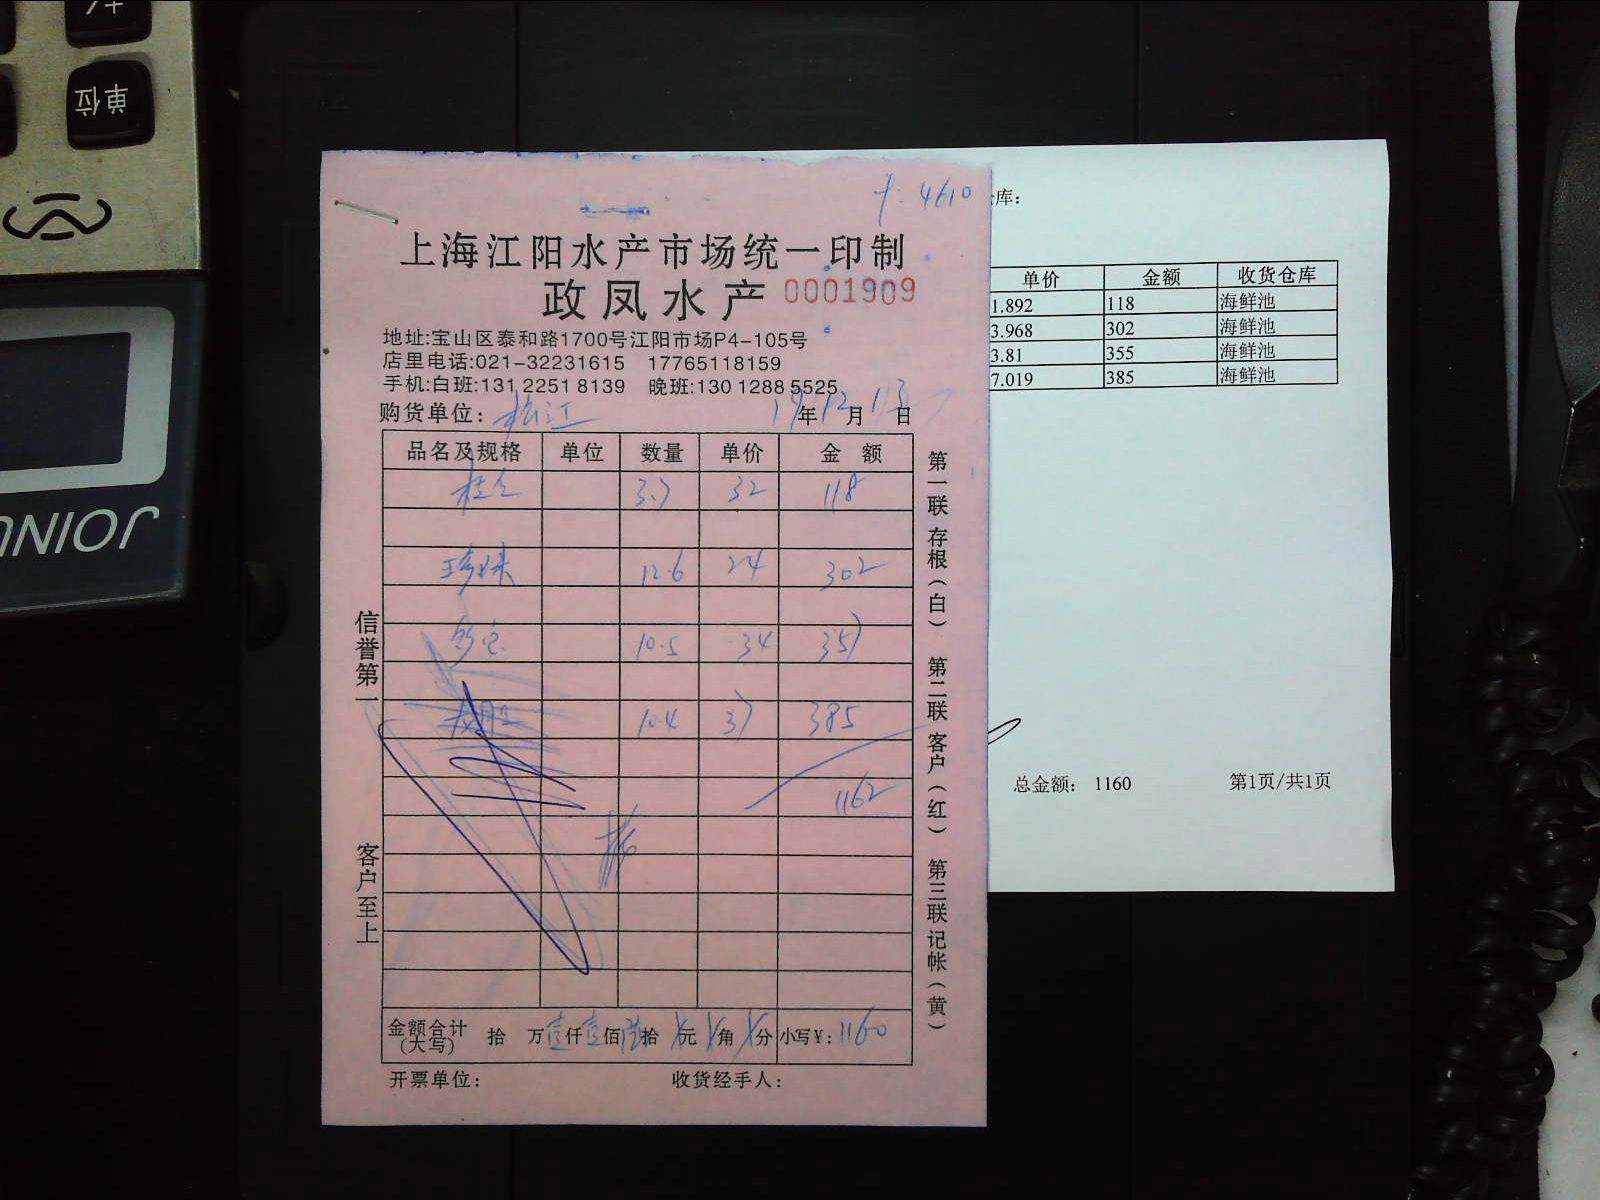 单位
JOINU
4610
上海江阳水产市场统一印制
政凤水产 0001909
地址:宝山区泰和路1700号江阳市场P4-105号
店里电话:021-32231615 17765118159
手机:白班:131 2251 8139 晚班:130 1288 5525
购货单位: 松江 19年12月13日
品名及规格 单位 数量 单价 金额
桂 3.7 32 118
12.6 24 302
10.5 34 357
10.4 37 385
1162
金额合计(大写) 拾 万壹仟壹佰陆拾 元 角 分 小写¥: 1160
开票单位: 收货经手人:
信誉第一
客户至上
第一联存根(白) 第二联客户(红) 第三联记帐(黄)
库:
单价 金额 收货仓库
1.892 118 海鲜池
3.968 302 海鲜池
3.81 355 海鲜池
7.019 385 海鲜池
总金额: 1160 第1页/共1页